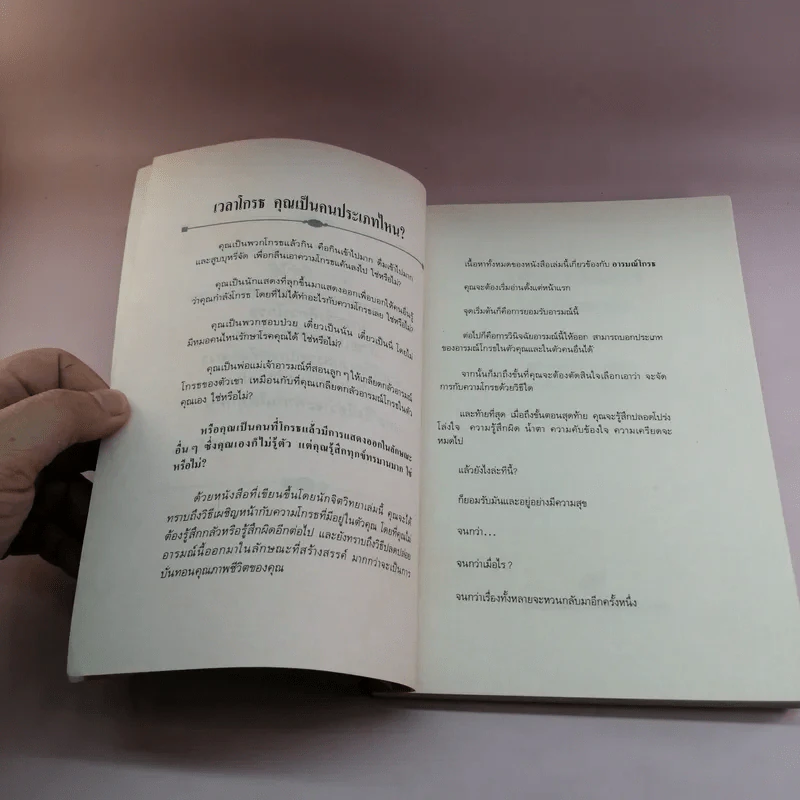 เวลาโกรธ คุณเป็นคนประเภทไหน?
คุณเป็นพวกโกรธแล้วกิน คือกินเข้าไปมาก ดื่มเข้าไปมาก
และสูบบุหรี่จัด เพื่อกลืนเอาความโกรธแค้นลงไป ใช่หรือไม่?
คุณเป็นนักแสดงที่ลุกขึ้นมาแสดงออกเพื่อบอกให้คนอื่นรู้
ว่าคุณกำลังโกรธ โดยที่ไม่ได้ทำอะไรกับความโกรธเลย ใช่หรือไม่?
คุณเป็นพวกชอบป่วย เดี๋ยวเป็นนั่น เดี๋ยวเป็นนี่ โดยไม่
มีหมอคนไหนรักษาโรคคุณได้ ใช่หรือไม่?
คุณเป็นพ่อแม่เจ้าอารมณ์ที่สอนลูกๆ ให้เกลียดกลัวอารมณ์
โกรธของตัวเขา เหมือนกับที่คุณเกลียดกลัวอารมณ์โกรธในตัว
คุณเอง ใช่หรือไม่?
หรือคุณเป็นคนที่โกรธแล้วมีการแสดงออกในลักษณะ
อื่นๆ ซึ่งคุณเองก็ไม่รู้ตัว แต่คุณรู้สึกทุกข์ทรมานมาก ใช่
หรือไม่?
ด้วยหนังสือที่เขียนขึ้นโดยนักจิตวิทยาเล่มนี้ คุณจะได้
ทราบถึงวิธีเผชิญหน้ากับความโกรธที่มีอยู่ในตัวคุณ โดยที่คุณไม่
ต้องรู้สึกกลัวหรือรู้สึกผิดอีกต่อไป และยังทราบถึงวิธีปลดปล่อย
อารมณ์นี้ออกมาในลักษณะที่สร้างสรรค์ มากกว่าจะเป็นการ
บั่นทอนคุณภาพชีวิตของคุณ
เนื้อหาทั้งหมดของหนังสือเล่มนี้เกี่ยวข้องกับ อารมณ์โกรธ
คุณจะต้องเริ่มอ่านตั้งแต่หน้าแรก
จุดเริ่มต้นก็คือการยอมรับอารมณ์นี้
ต่อไปก็คือการวินิจฉัยอารมณ์นี้ให้ออก สามารถบอกประเภท
ของอารมณ์โกรธในตัวคุณและในตัวคนอื่นได้
จากนั้นก็มาถึงขั้นที่คุณจะต้องตัดสินใจเลือกเอาว่า จะจัด
การกับความโกรธด้วยวิธีใด
และท้ายที่สุด เมื่อถึงขั้นตอนสุดท้าย คุณจะรู้สึกปลอดโปร่ง
โล่งใจ ความรู้สึกผิด น้ำตา ความคับข้องใจ ความเครียดจะ
หมดไป
แล้วยังไงล่ะทีนี้?
ก็ยอมรับมันและอยู่อย่างมีความสุข
จนกว่า...
จนกว่าเมื่อไร?
จนกว่าเรื่องทั้งหลายจะหวนกลับมาอีกครั้งหนึ่ง